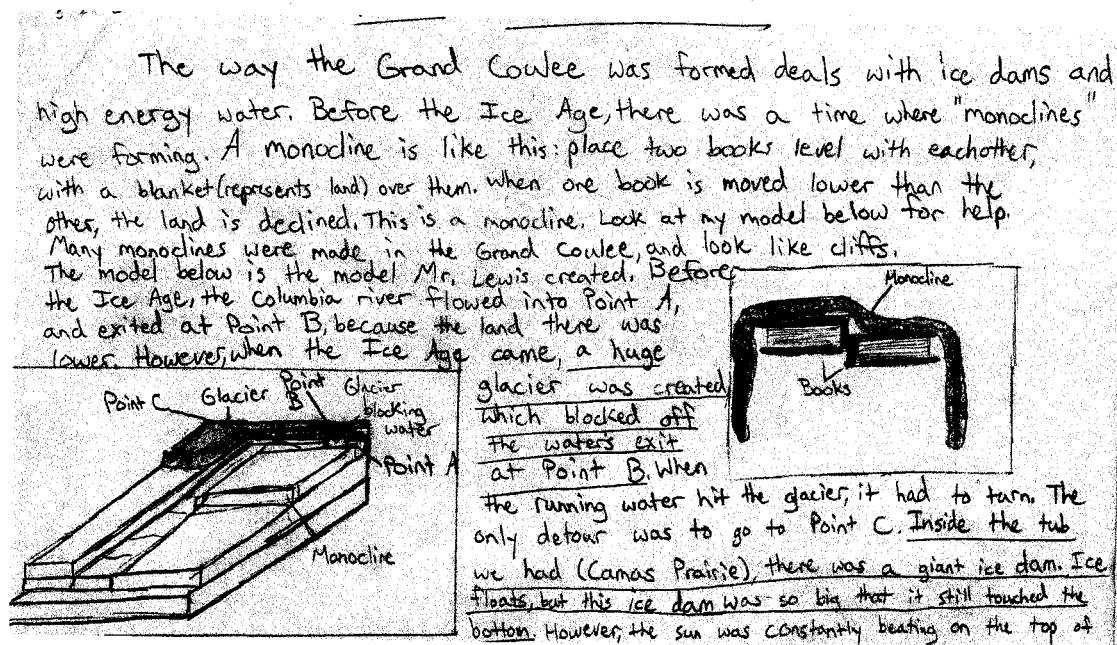 The way the Grand Coulee was formed deals with ice dams and
high energy water. Before the Ice Age, there was a time where "monoclines"
were forming. A monocline is like this: place two books level with eachother,
with a blanket (represents land) over them. When one book is moved lower than the
other, the land is declined. This is a monocline. Look at my model below for help.
Many monoclines were made in the Grand Coulee, and look like cliffs.
The model below is the model Mr. Lewis created. Before
the Ice Age, the Columbia river flowed into Point A,
and exited at Point B, because the land there was
lower. However, when the Ice Age came, a huge
glacier was created
which blocked off
the water's exit
at Point B. When
the running water hit the glacier, it had to turn. The
only detour was to go to Point C. Inside the tub
we had (Camas Prairie), there was a giant ice dam. Ice
floats, but this ice dam was so big that it still touched the
bottom. However, the sun was constantly beating on the top of
Monocline
Books
Point C
Glacier
Point B
Glacier
blocking
water
Point A
Monocline